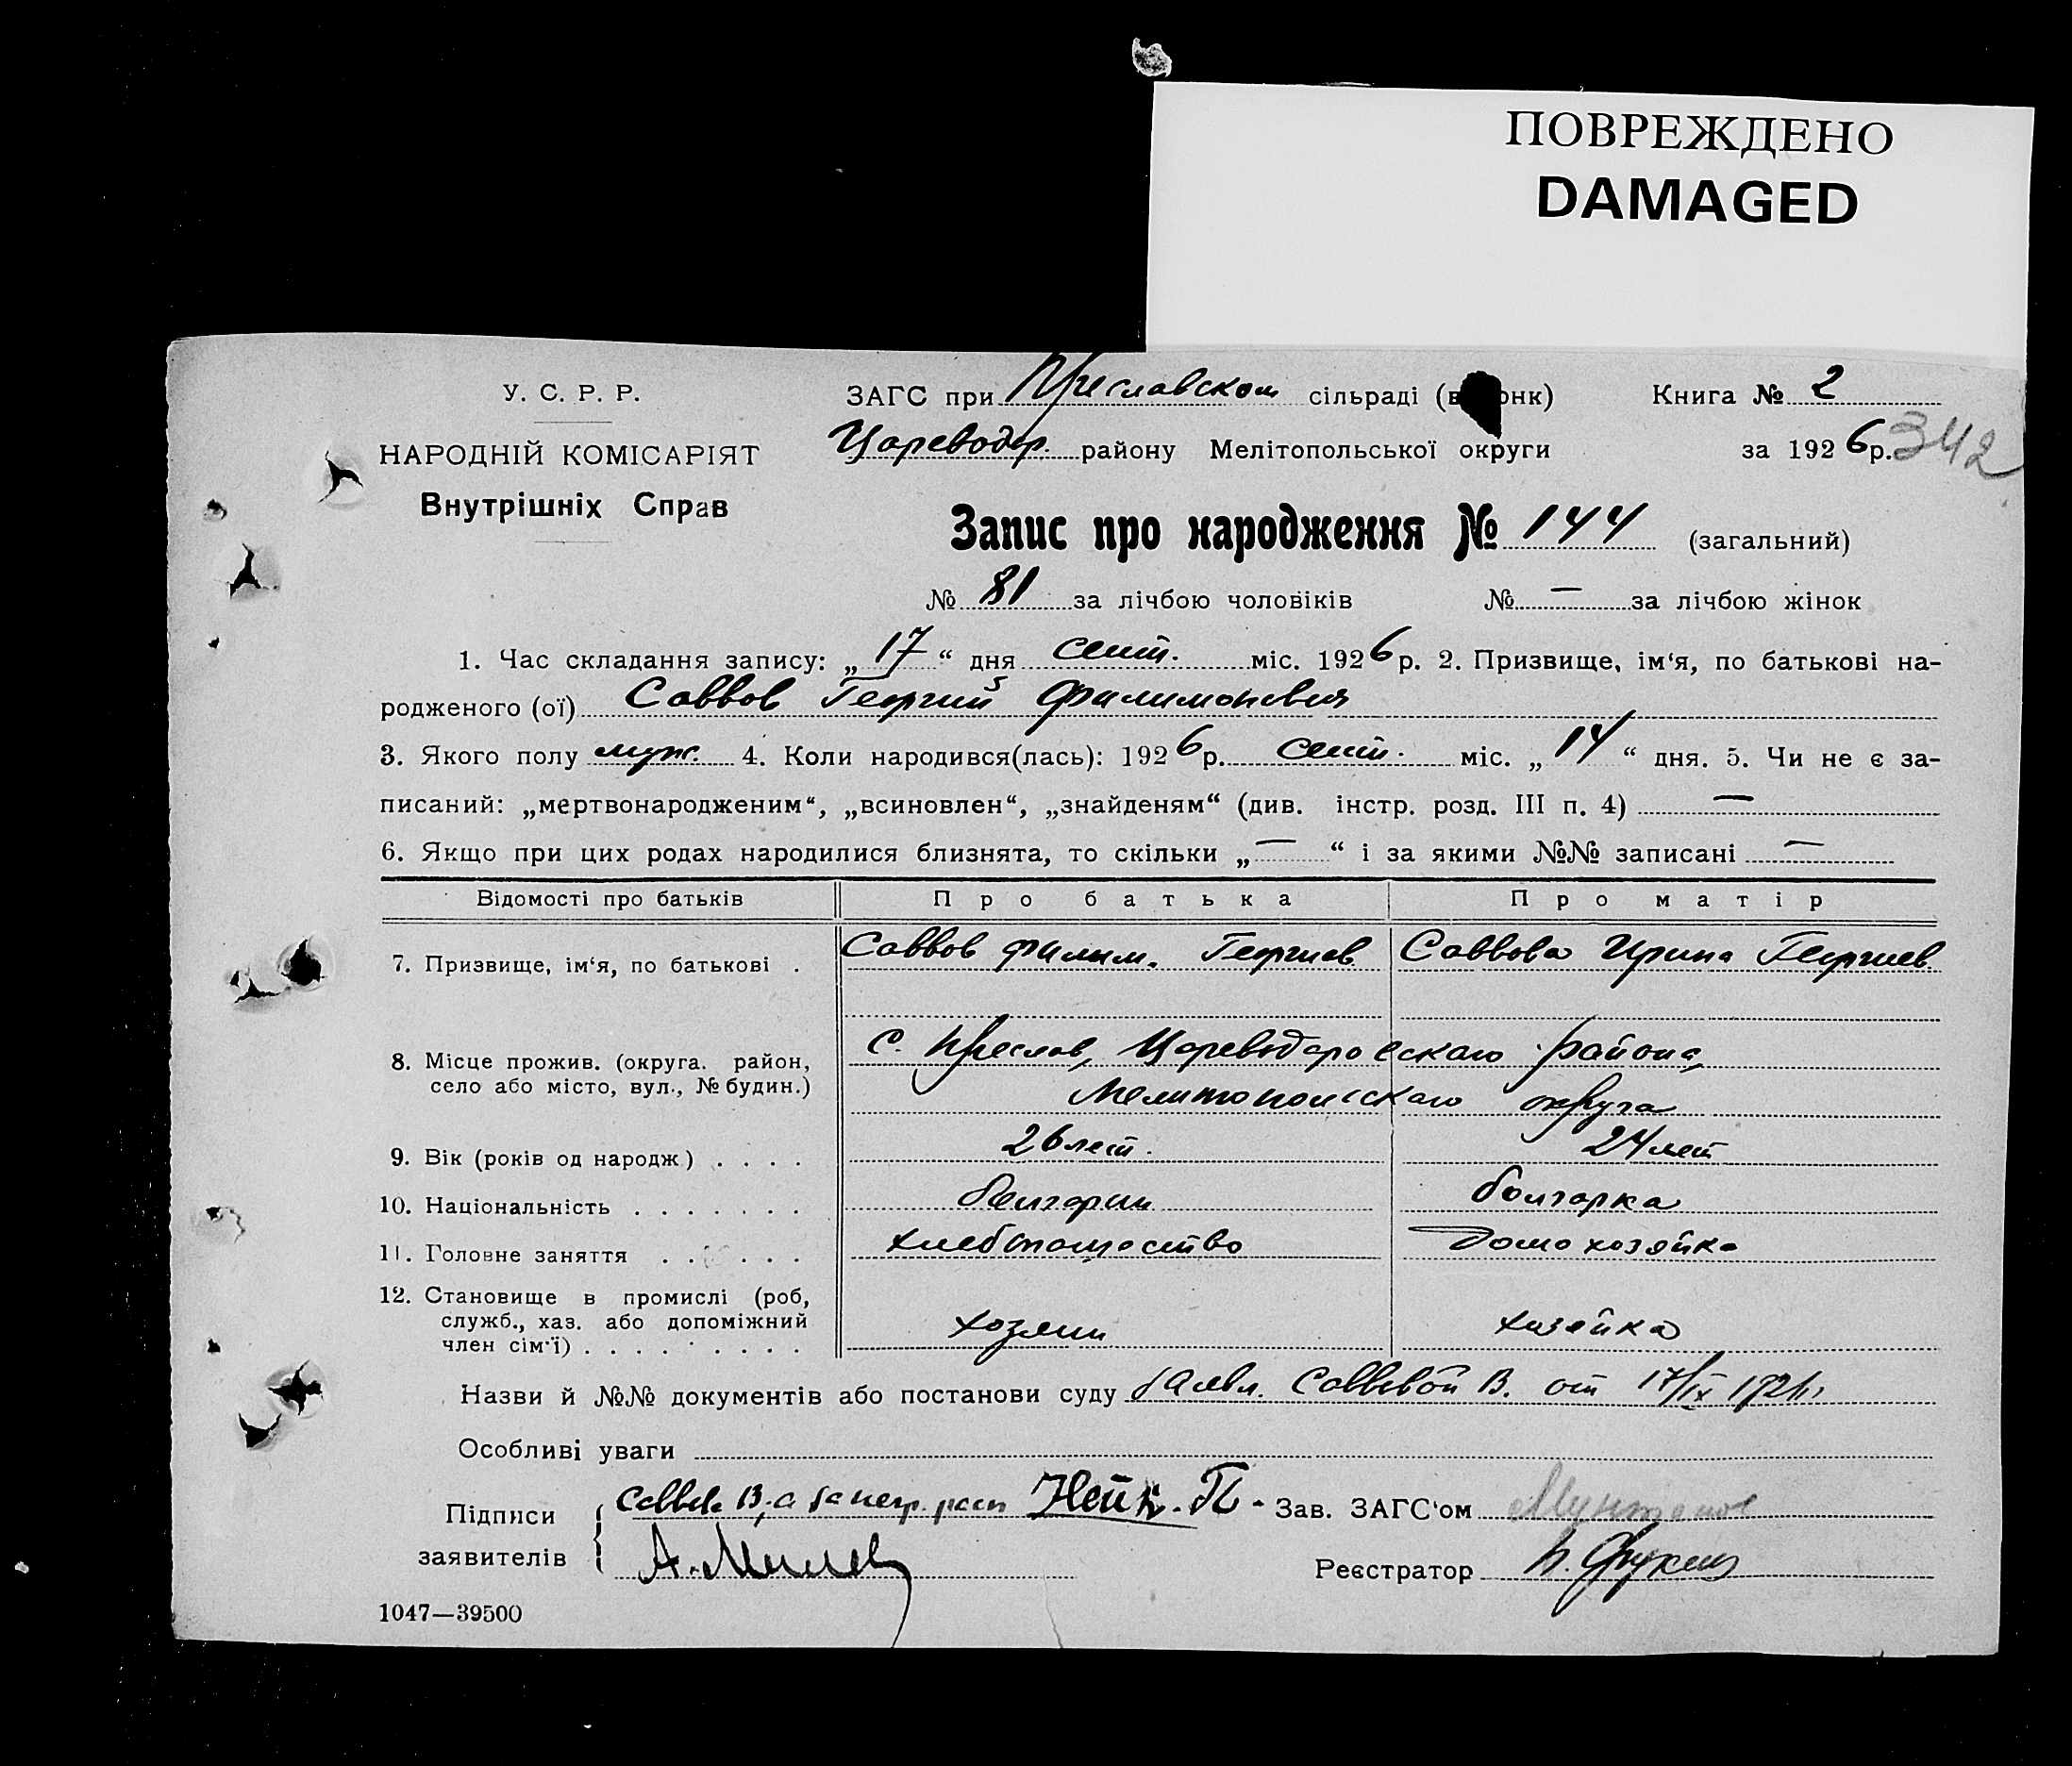 ПОВРЕЖДЕНО
DAMAGED
У. С. Р. Р.
НАРОДНІЙ КОМІСАРІЯТ
Внутрішніх Справ
ЗАГС при Преславском сільраді (в онк)
Цареводар. району Мелітопольської округи
Книга № 2
за 1926 р. 342
Запис про народження № 144 (загальний)
№ 81 за лічбою чоловіків № — за лічбою жінок
1. Час складання запису: „17“ дня сент. міс. 1926 р. 2. Призвище, ім‘я, по батькові на-
родженого (ої) Саввов Георгий Филимонович
3. Якого полу муж. 4. Коли народився(лась): 1926 р. сент. міс. „14“ дня. 5. Чи не є за-
писаний: „мертвонародженим“, „всиновлен“, „знайденям“ (див. інстр. розд. III п. 4) —
6. Якщо при цих родах народилися близнята, то скільки „—“ і за якими №№ записані —
Відомості про батьків Про батька Про матір
7. Призвище, ім‘я, по батькові . Саввов Филим. Георгиев. Саввова Ирина Георгиев.
8. Місце прожив. (округа. район, село або місто, вул., № будин.) С. Преслав, Цареводаровскаго района,
Мелитопольскаго округа
9. Вік (років од народж) . . . . 26 лет. 24 лет
10. Національність . . . . . . . болгарин болгарка
11. Головне заняття . . . . . хлебопашество домохозяйка
12. Становище в промислі (роб,
служб., хаз. або допоміжний
член сім‘ї) . . . . . . . . . хозяин хозяйка
Назви й №№ документів або постанови суду Заявл. Саввовой В. от 17/IX
Особливі уваги
Підписи
заявителів
Саввова В, а за негр. расп
А. Милев
Зав. ЗАГС‘ом
Реєстратор
1047—39500